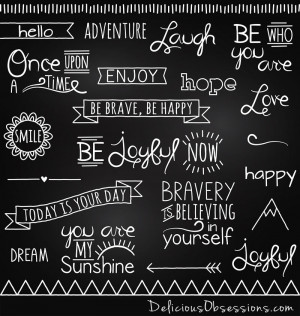 hello
ADVENTURE
Laugh
BE WHO
you are
Once UPON
A TIME
ENJOY
hope
Love
BE BRAVE, BE HAPPY
SMILE
BE Joyful NOW
happy
TODAY IS YOUR DAY
BRAVERY
IS BELIEVING
in
yourself
you are
MY
Sunshine
DREAM
joyful
DeliciousObsessions.com